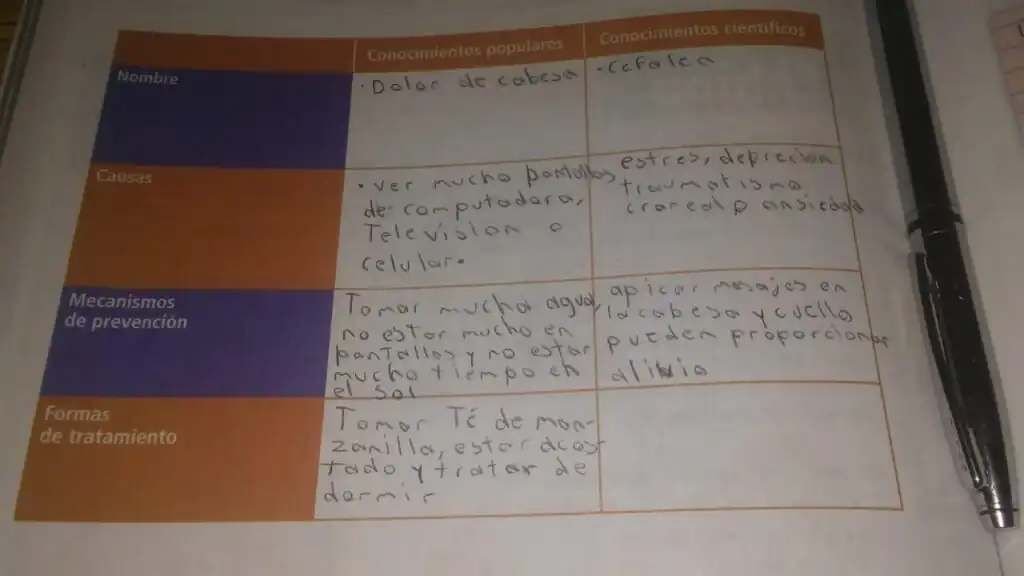 Conocimientos populares
Conocimientos científicos
Nombre
· Dolor de cabesa
· Cefalea
Causas
· ver mucho pantallas
de computadora,
Television o
celular.
estres, deprecion
traumatismo
craneal o ansiedad
Mecanismos
de prevención
Tomar mucha agua,
no estar mucho en
pantallas y no estar
mucho tiempo en
el sol
aplicar masajes en
la cabesa y cuello
pueden proporcionar
alivio
Formas
de tratamiento
Tomar Té de man-
zanilla, estar acos
tado y tratar de
dormir